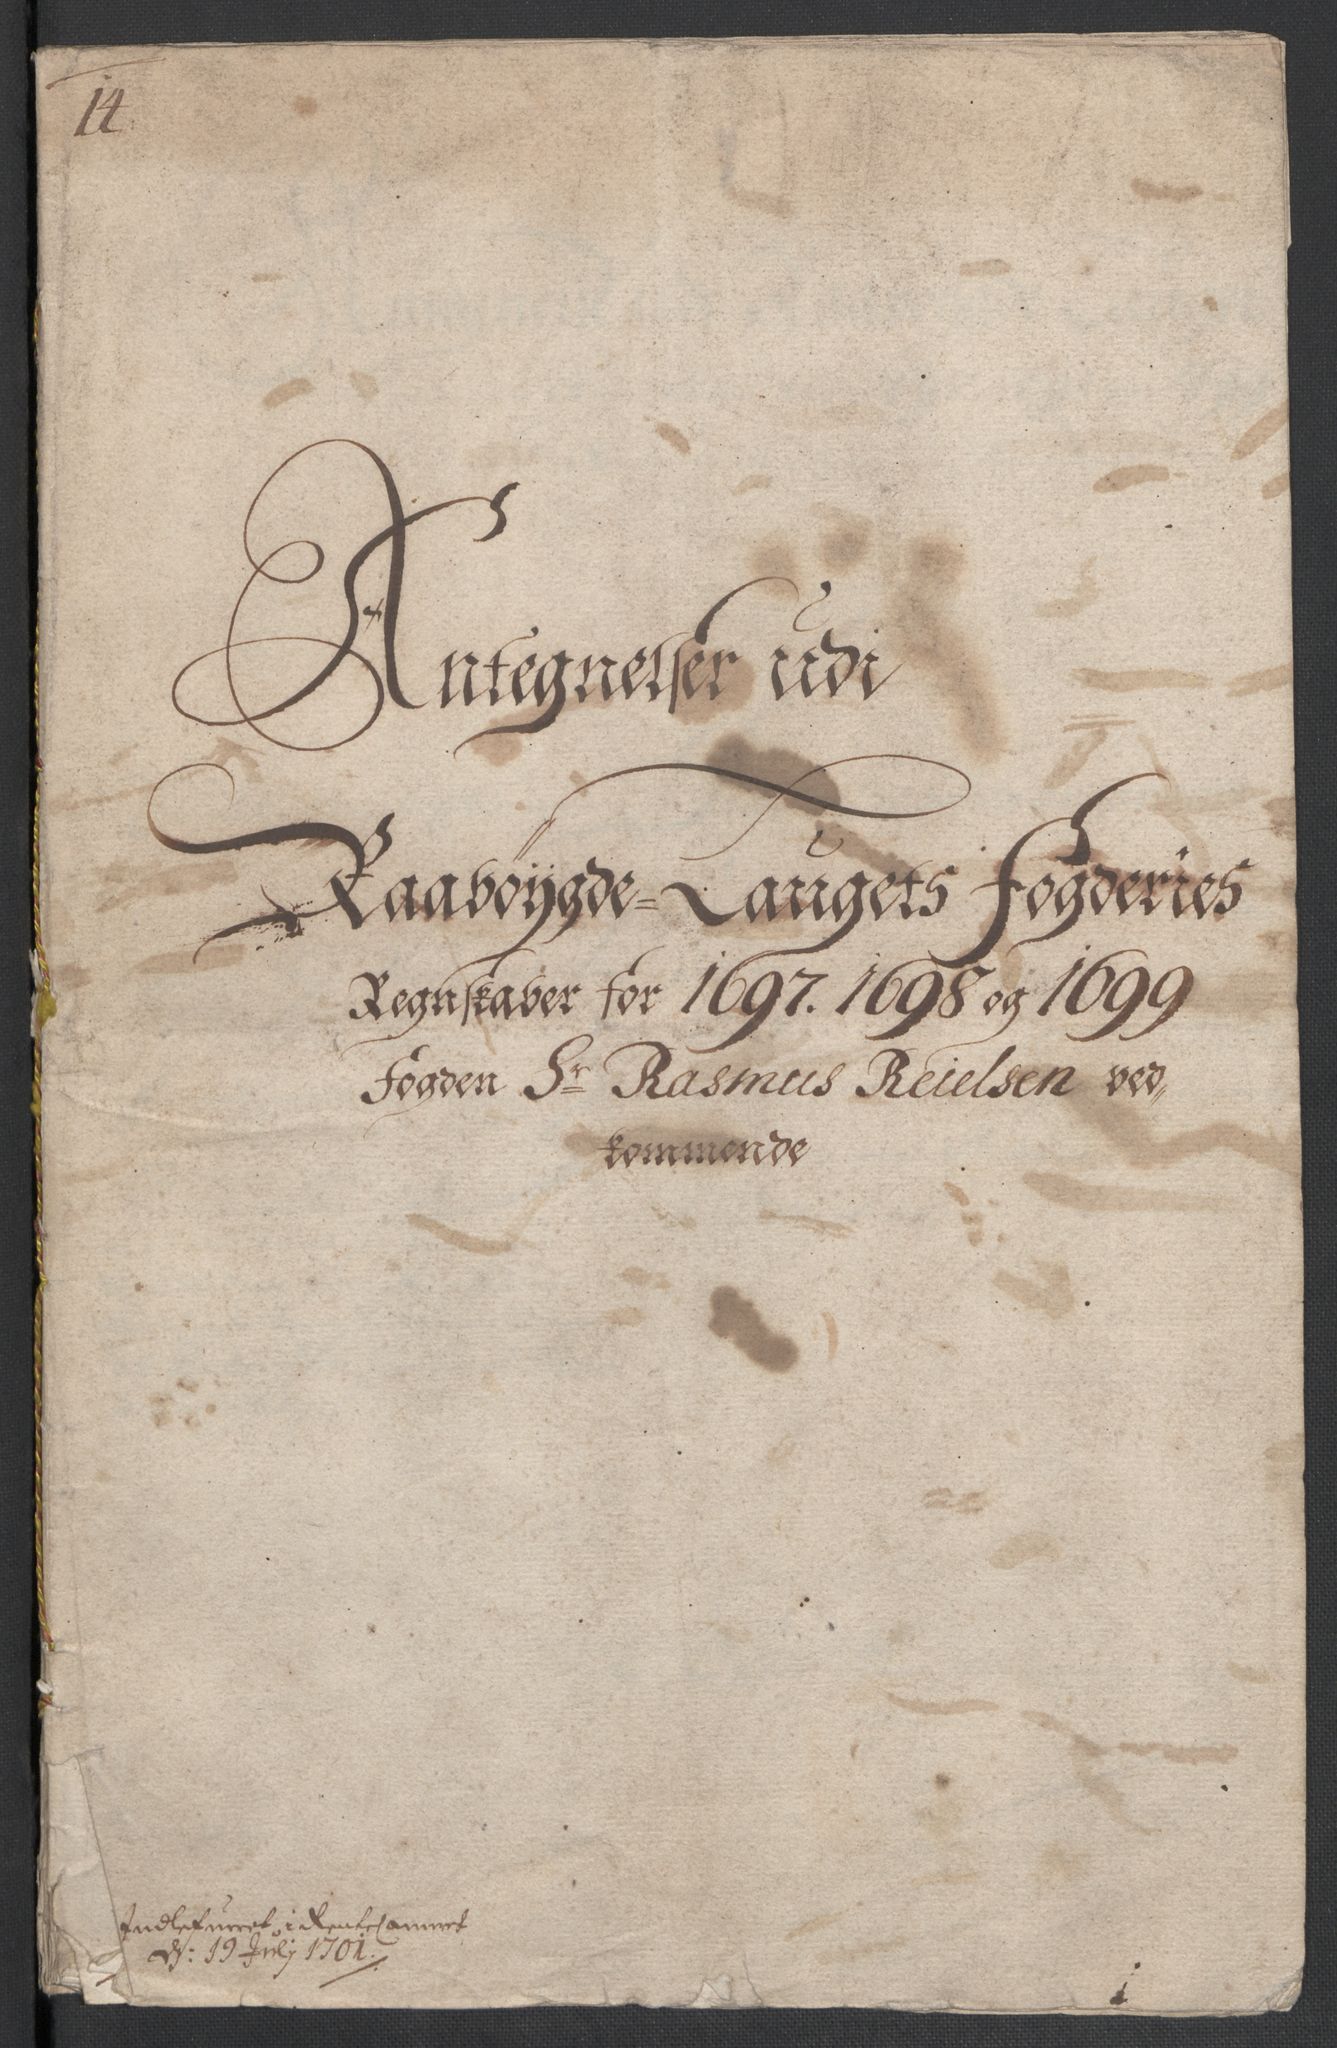 14
Antegnelser udi
Raaböÿgde=Laugets fogderies
Regnskaber for 1697. 1698 og 1699
fogden Sr Rasmus Reielsen ved,
kommende
Indlefueret i RenteCamret
d: 19 Julÿ 1701.
1